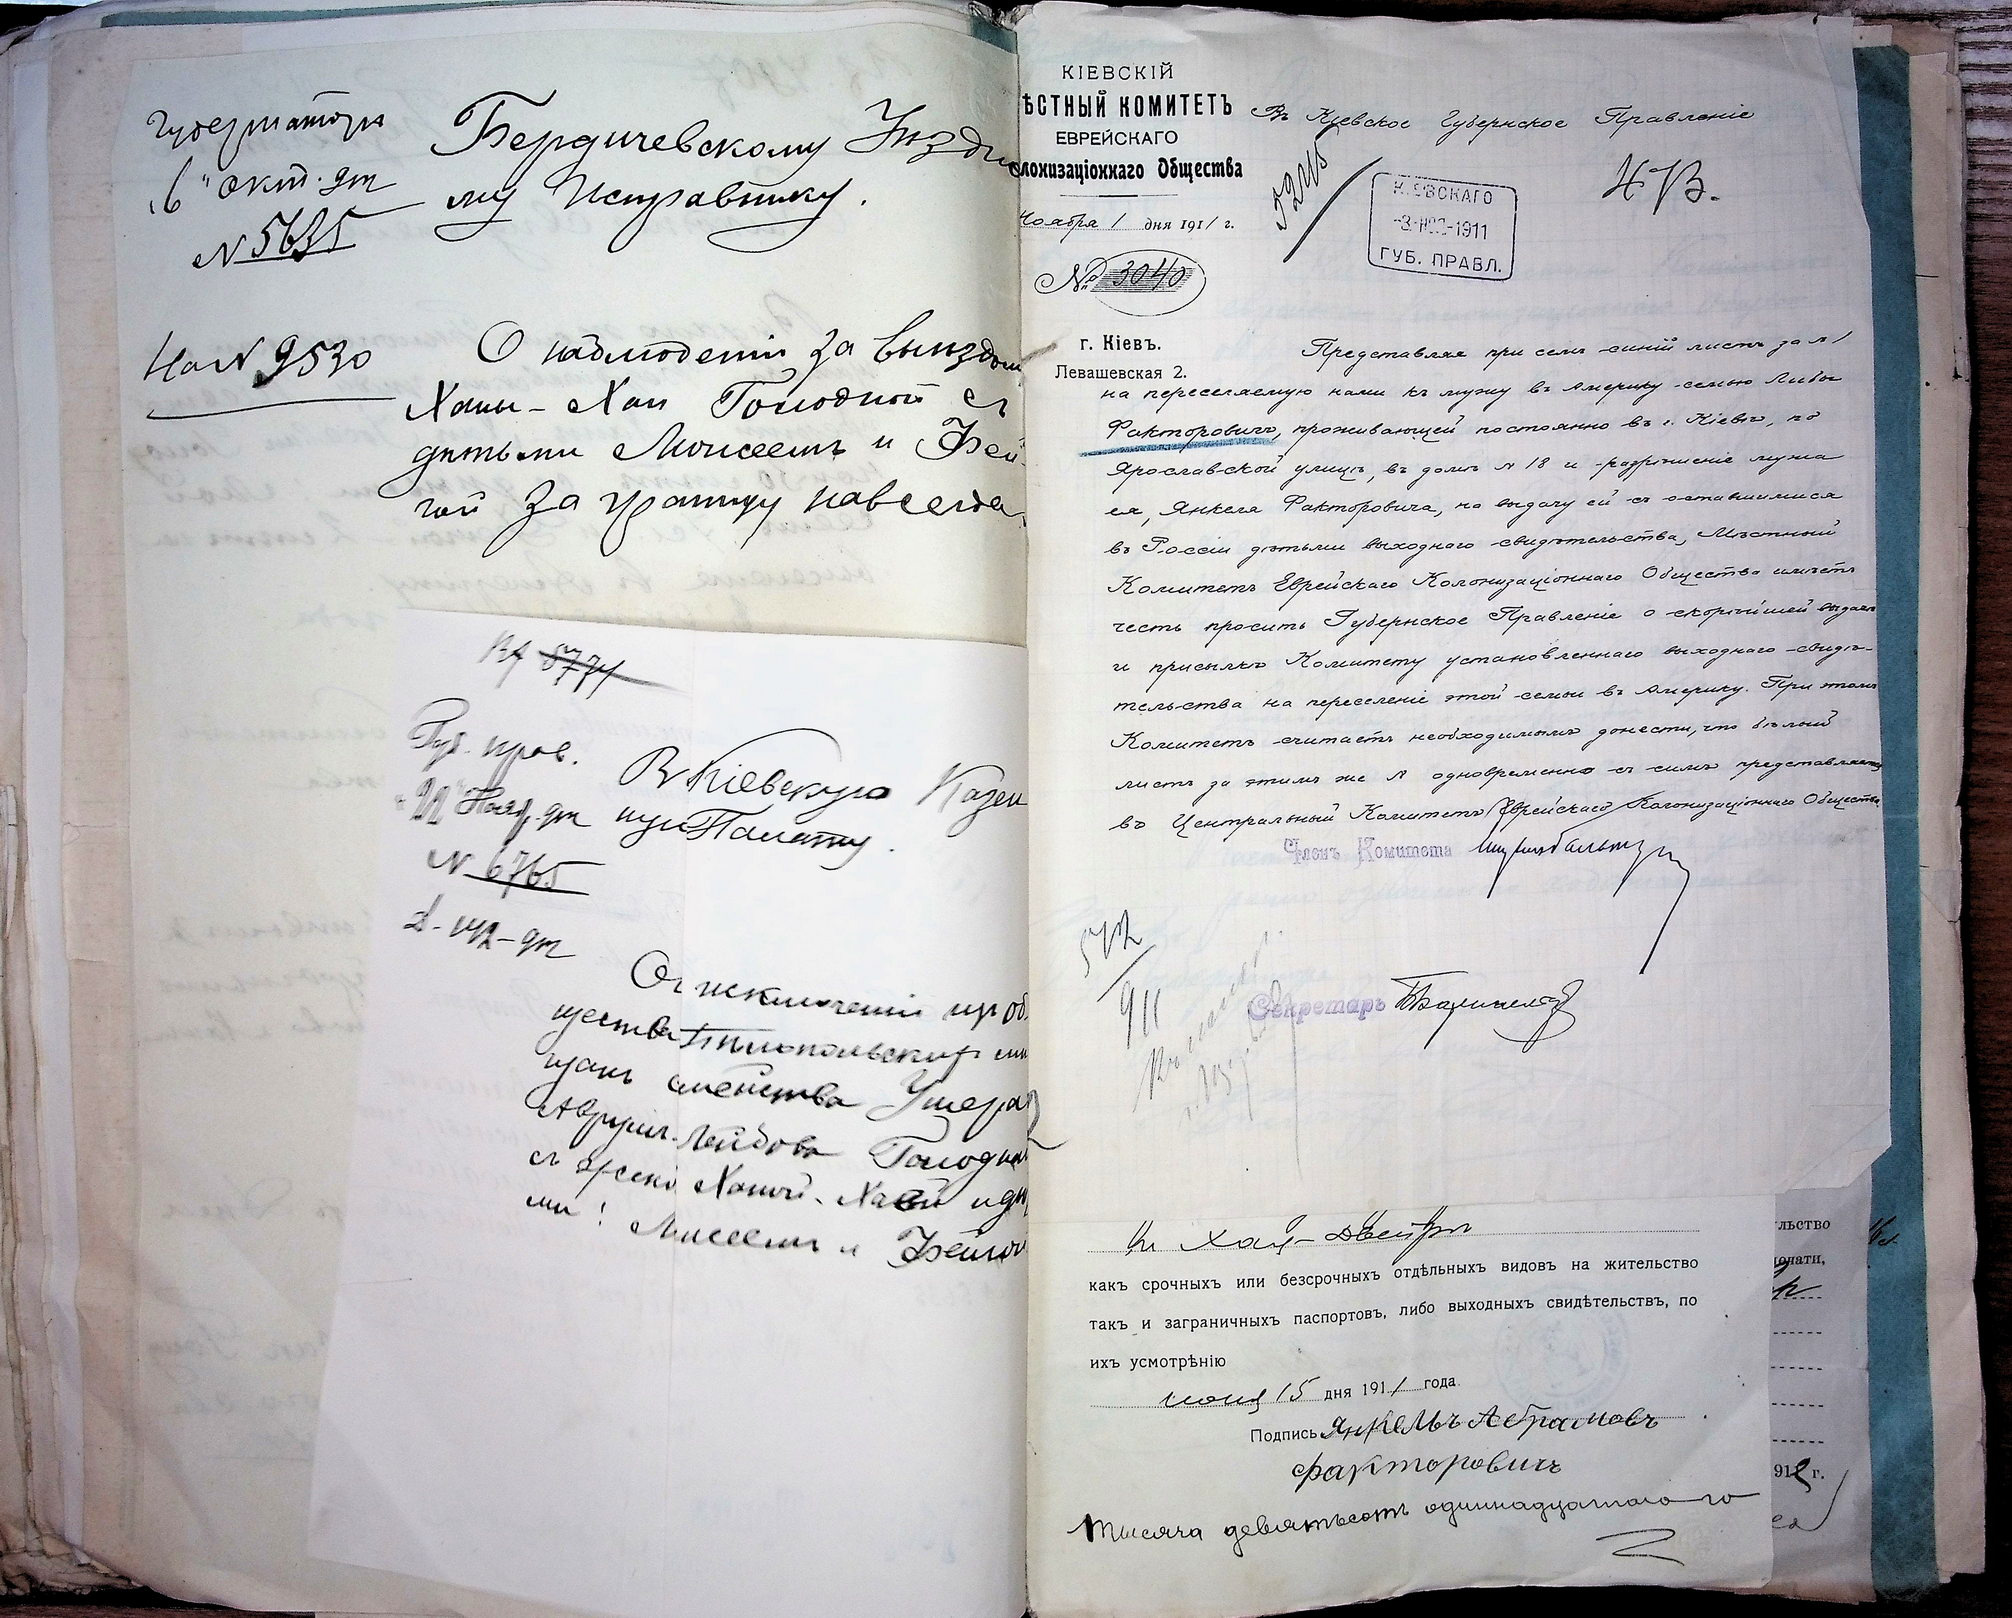 Губернатора
6 окт. дн
N 5635
На N 9530
Бердичевскому Уѣздно
му Исправнику.
О наблюденіи за выѣздом
Ханы-Хаи Голодной съ
дѣтьми Моисеемъ и Бей
лой за границу навсегда.
Губ. прав.
22 Нояб. дн
N 6765
В Кіевскую Казен
ную Палату.
Объ исключеніи изъ об
щества мѣ
щанъ семейства Ушера
Лейбова Голодна
съ женою Ханой-Хаей и дѣть
ми: Моисеемъ и Бейлой
КІЕВСКІЙ
ѢСТНЫЙ КОМИТЕТЪ
ЕВРЕЙСКАГО
лонизаціоннаго Общества
Ноября 1 дня 1911 г.
№ 3040
г. Кіевъ.
Левашевская 2.
Въ Кіевское Губернское Правленіе
КІЕВСКАГО
-3-НОЯ-1911
ГУБ. ПРАВЛ.
Представляя при семъ синій листъ за №
на переселяемую нами къ мужу въ Америку семью Либы
Факторовичъ, проживающей постоянно въ г. Кіевѣ, по
Ярославской улицѣ, въ домѣ N 18 и разрѣшеніе мужа
ея, Янкеля Факторовича, на выдачу ей съ оставшимися
въ Россіи дѣтьми выходного свидѣтельства, Мѣстный
Комитетъ Еврейскаго Колонизаціоннаго Общества имѣетъ
честь просить Губернское Правленіе о скорѣйшей выдачѣ
и присылкѣ Комитету установленнаго выходного свидѣ-
тельства на переселеніе этой семьи въ Америку. При этомъ
Комитетъ считаетъ необходимымъ донести, что бѣлый
листъ за этимъ же № одновременно съ симъ представляется
въ Центральный Комитетъ Еврейскаго Колонизаціоннаго Общества
Членъ Комитета
572
911
Секретарь
и Хая-Двейра
какъ срочныхъ или безсрочныхъ отдѣльныхъ видовъ на жительство
такъ и заграничныхъ паспортовъ, либо выходныхъ свидѣтельствъ, по
ихъ усмотрѣнію
15 дня 1911 года
Подпись Янкель Абрамовъ
Факторовичъ
тысяча девятьсотъ одиннадцатаго го
льство
печати,
912 г.